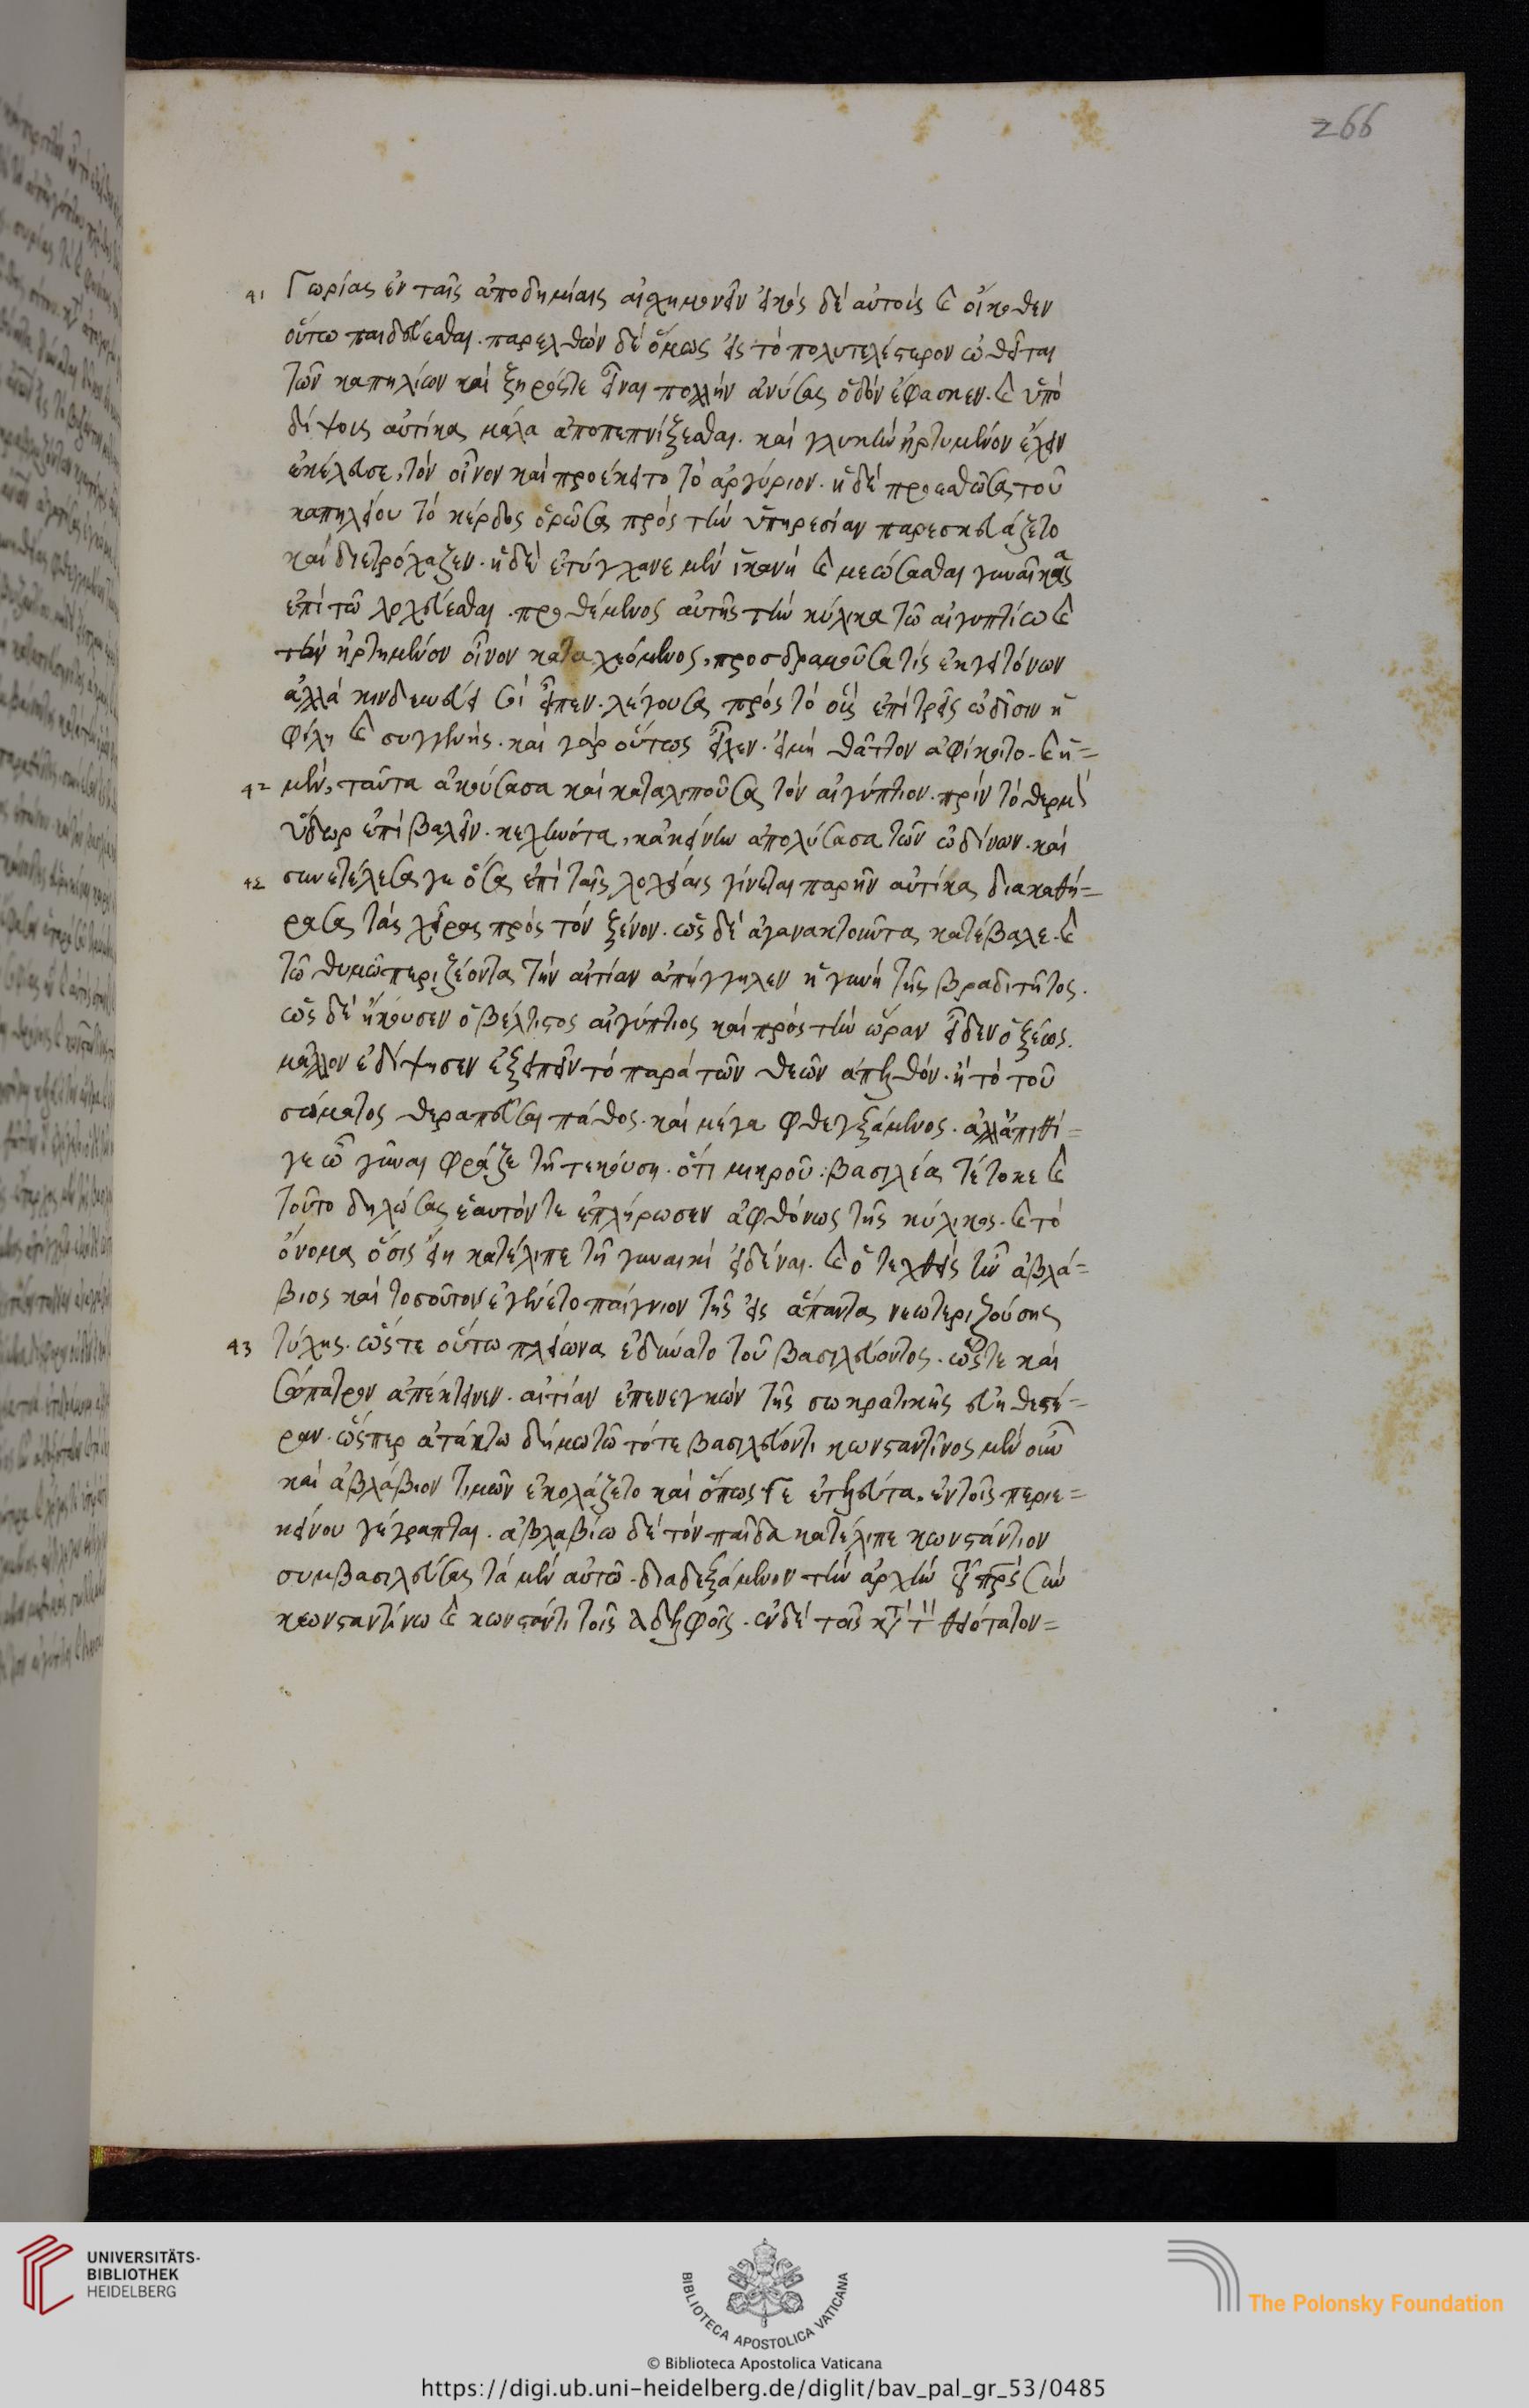 266
41 Γωρίας ἐν ταῖς ἀποδημίαις αἰσχημονεῖν εἰκός δέ αὐτοῖς καὶ οἴκοθεν
οὕτω παιδεύεσθαι. παρελθών δέ ὅμως εἰς τό πολυτελέστερον ὠθεῖται
τῶν καπηλίων καί ξηρός τε εἶναι πολλήν ἀνύσας ὁδόν ἔφασκεν. καὶ ὑπό
δίψους αὐτίκας μάλα ἀποπεπνίξεσθαι. καί γλυκύν ἠρτυμένον ἐλεῖν
ἐκέλευσε, τόν οἶνον καί προέκειτο τό ἀργύριον. ἡ δέ προεστῶσα τοῦ
καπηλείου τό κέρδος ὁρῶσα πρός τήν ὑπηρεσίαν παρεσκευάζετο
καί διετρόχαζεν. ἡ δέ ἐτύγχανε μέν ἱκανή καὶ μεώσασθαι γυναῖκας
ἐπί τῶ λοχεύεσθαι. προθέμενος αὐτῆς τήν κύλικα τῶ αἰγυπτίω καὶ
τόν ἠρτημένον οἶνον καταχεόμενος, προσδραμοῦσα τίς ἐκ γειτόνων
ἀλλά κινδευνεύει σοί εἶπεν. λέγουσα πρός τό οὖς ἐπί τραῖς ὠδῖσιν ἡ
φίλη καὶ συγγενής. καί γάρ οὕτως εἶχεν. εἰ μή θᾶττον ἀφίκοιτο. καὶ ἡ=
42 μέν, ταῦτα ἀκούσασα καί καταλιποῦσα τόν αἰγύπτιον. πρίν τό θερμὸν
ὕδωρ ἐπιβαλεῖν. κεχηνότα, κἀκείνην ἀπολύσασα τῶν ὠδίνων. καί
42 συνετέλεσά γε ὅσα ἐπί ταῖς λοχείαις γίνεται παρῆν αὐτίκα διακαθή=
ρασα τάς χεῖρας πρός τόν ξένον. ὡς δέ ἀγανακτοῦντα κατέβαλε. καὶ
τῶ θυμῶ περιζέοντα τήν αἰτίαν ἀπήγγηλεν ἡ γυνή τῆς βραδιτῆτος.
ὡς δέ ἤκουσεν ὁ βέλτιστος αἰγύπτιος καί πρός τήν ὥραν εἶδεν ὀξέως.
μᾶλλον ἐδίψησεν ἐξειπεῖν τό παρά τῶν θεῶν ἀπελθόν. ἤ τό τοῦ
σώματος θεραπεῦσαι πάθος. καί μέγα φθεγξάμενος. ἀλλ' ἄπιθί=
γε ὦ γύναι φράζε τῆ τεκούση. ὅτι μικροῦ: βασιλέα τέτοκε καὶ
τοῦτο δηλώσας ἑαυτόν τε ἐπλήρωσεν ἀφθόνως τῆς κύλικος. καὶ τό
ὄνομα ὅσις εἴη κατέλιπε τῆ γυναικί εἰδέναι. καὶ ὁ τεχθείς ἦν ἀβλά=
βιος καί τοσοῦτον ἐγένετο παίγνιον τῆς εἰς ἅπαντα νεωτεριζούσης
43 τύχης. ὥστε οὕτω πλείωνα ἐδύνατο τοῦ βασιλεύοντος. ὥστε καί
σόπατρον ἀπέκτεινεν. αἰτίαν ἐπενεγκών τῆς σωκρατικῆς εὐηθεστέ=
ραν. ὥσπερ ἀτάκτω δήμω τῶ τότε βασιλεύοντι κωνσταντῖνος μέν οὖν
καί ἀβλάβιον τιμῶν ἐκολάζετο καί ὅπως γε ἐτελεύτα. ἐν τοῖς περι ἐ=
κείνου γέγραπται. ἀβλαβίω δέ τόν παῖδα κατέλιπε κωνστάντιον
συμβασιλεύσας τά μέν αὐτῶ. διαδεξάμενον τήν ἀρχήν τοῦ πρς σύν
κωνσταντίνω καὶ κώνσταντι τοῖς ἀδελφοῖς. ἐν δέ τοῖς κτ τ θειότατον=
UNIVERSITÄTS-
BIBLIOTHEK
HEIDELBERG
BIBLIOTECA APOSTOLICA VATICANA
The Polonsky Foundation
© Biblioteca Apostolica Vaticana
https://digi.ub.uni-heidelberg.de/diglit/bav_pal_gr_53/0485